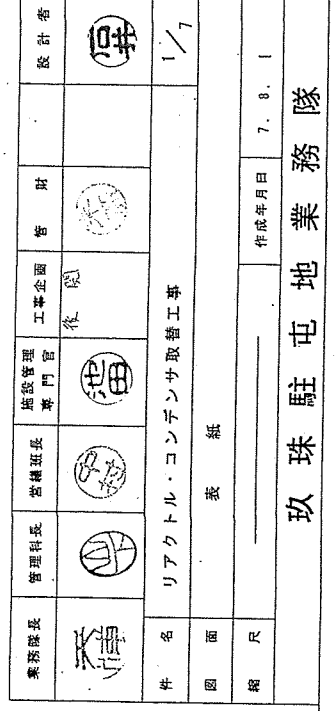 業務隊長 管理科長 営繕班長 施設管理専門官 工事企画 管財 設計者
後閲 池田
件名 リアクトル・コンデンサ取替工事 1/7
図面 表紙
縮尺 作成年月日 7.8.1
玖珠駐屯地業務隊